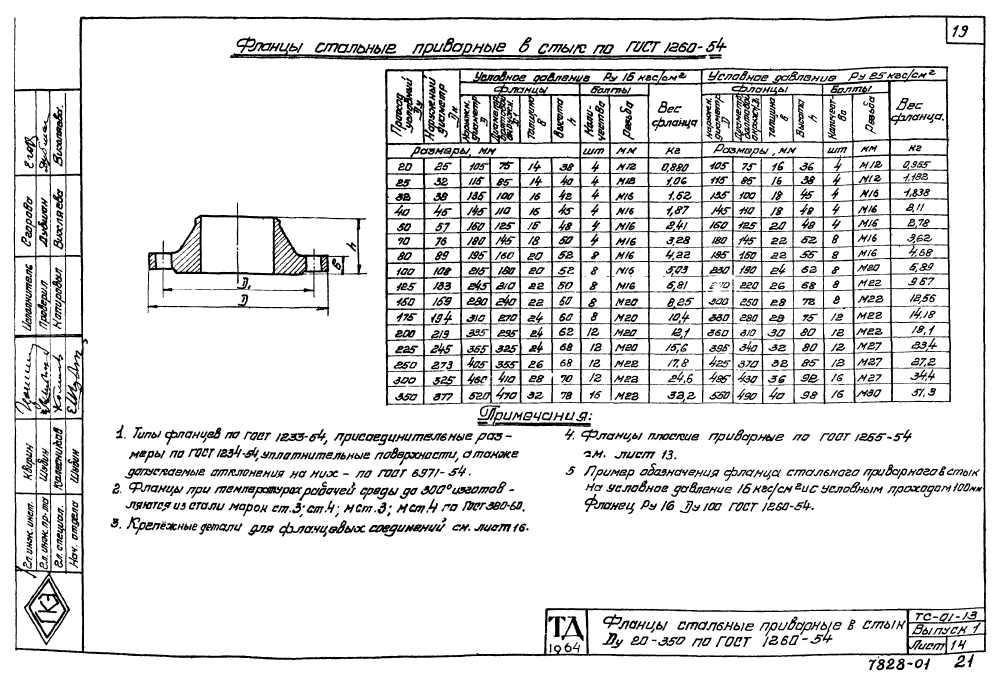 19
Фланцы стальные приварные в стык по ГОСТ 1260-54
Проход условный Ду
Наружный диаметр Дн
Условное давление Ру 16 кгс/см²
Условное давление Ру 25 кгс/см²
Фланцы Болты Вес фланца
Фланцы Болты Вес фланца.
Размеры, мм шт мм кг Размеры, мм шт мм кг
20 25 105 75 14 38 4 М12 0,880 105 75 16 36 4 М12 0,955
25 32 115 85 14 40 4 М12 1,06 115 85 16 38 4 М12 1,182
32 38 135 100 16 42 4 М16 1,62 135 100 18 45 4 М16 1,838
40 45 145 110 16 45 4 М16 1,87 145 110 18 48 4 М16 2,11
50 57 160 125 16 48 4 М16 2,41 160 125 20 48 4 М16 2,78
70 76 180 145 18 50 4 М16 3,28 180 145 22 52 8 М16 3,62
80 89 195 160 20 52 8 М16 4,22 195 160 22 55 8 М16 4,68
100 108 215 180 20 52 8 М16 5,03 230 190 24 62 8 М20 6,89
125 133 245 210 22 60 8 М16 6,81 270 220 26 68 8 М22 9,67
150 159 280 240 22 60 8 М20 8,25 300 250 28 72 8 М22 12,56
175 194 310 270 24 60 8 М20 10,4 330 280 28 75 12 М22 14,18
200 219 335 295 24 62 12 М20 12,1 360 310 30 80 12 М22 18,1
225 245 365 325 24 68 12 М20 15,6 395 340 32 80 12 М27 23,4
250 273 405 355 26 68 12 М22 17,8 425 370 32 85 12 М27 27,2
300 325 460 410 28 70 12 М22 24,6 485 430 36 92 16 М27 34,4
350 377 520 470 32 78 16 М22 32,2 550 490 40 98 16 М30 51,3
h
в
Д₁
Д
Примечания:
1. Типы фланцев по ГОСТ 1233-54, присоединительные раз-
меры по ГОСТ 1234-54, уплотнительные поверхности, а также
допускаемые отклонения на них - по ГОСТ 6971-54.
2. Фланцы при температурах рабочей среды до 300° изготов-
ляются из стали марок ст.3; ст.4; мст.3; мст.4 по ГОСТ 380-60.
3. Крепёжные детали для фланцевых соединений см. лист 16.
4. Фланцы плоские приварные по ГОСТ 1255-54
см. лист 13.
5 Пример обозначения фланца стального приварного в стык
на условное давление 16 кгс/см² и с условным проходом 100мм
Фланец Ру 16 Ду 100 ГОСТ 1260-54.
Исполнитель Егорова
Проверил
Копировал
Гл. инж. инст.
Гл. инж. пр-та Шубин
Гл. специал. Колесников
Нач. отдела Шубин
ТД
1964
Фланцы стальные приварные в стык
Ду 20-350 по ГОСТ 1260-54
ТС-01-13
Выпуск 1
Лист 14
7828-01 21